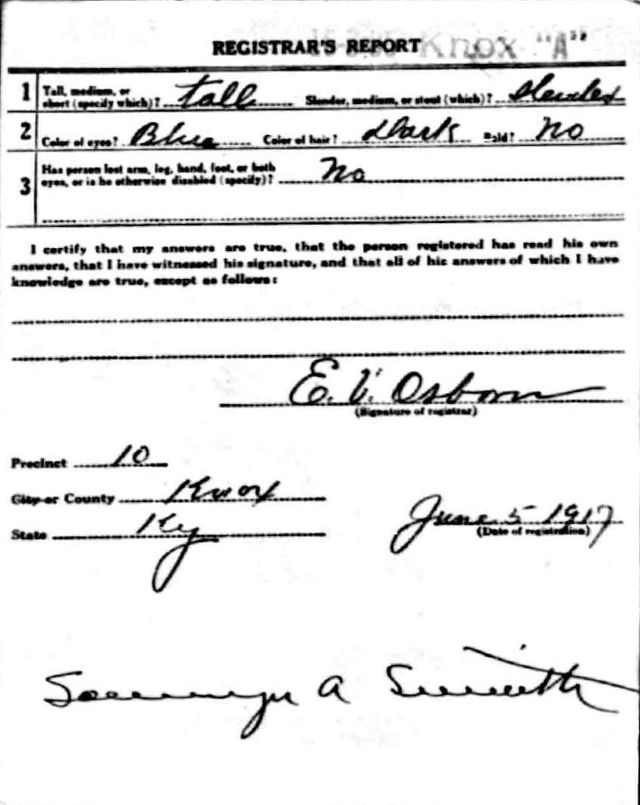 REGISTRAR'S REPORT Knox "A"
1 Tall, medium, or short (specify which)? Tall Slender, medium, or stout (which)? Slender
2 Color of eyes? Blue Color of hair? Dark Bald? No
3 Has person lost arm, leg, hand, foot, or both
eyes, or is he otherwise disabled (specify)? No
I certify that my answers are true, that the person registered has read his own
answers, that I have witnessed his signature, and that all of his answers of which I have
knowledge are true, except as follows:
E. V. Osborn
(Signature of registrar)
Precinct 10
City or County Knox
State Ky
June 5 1917
(Date of registration)
A Smith